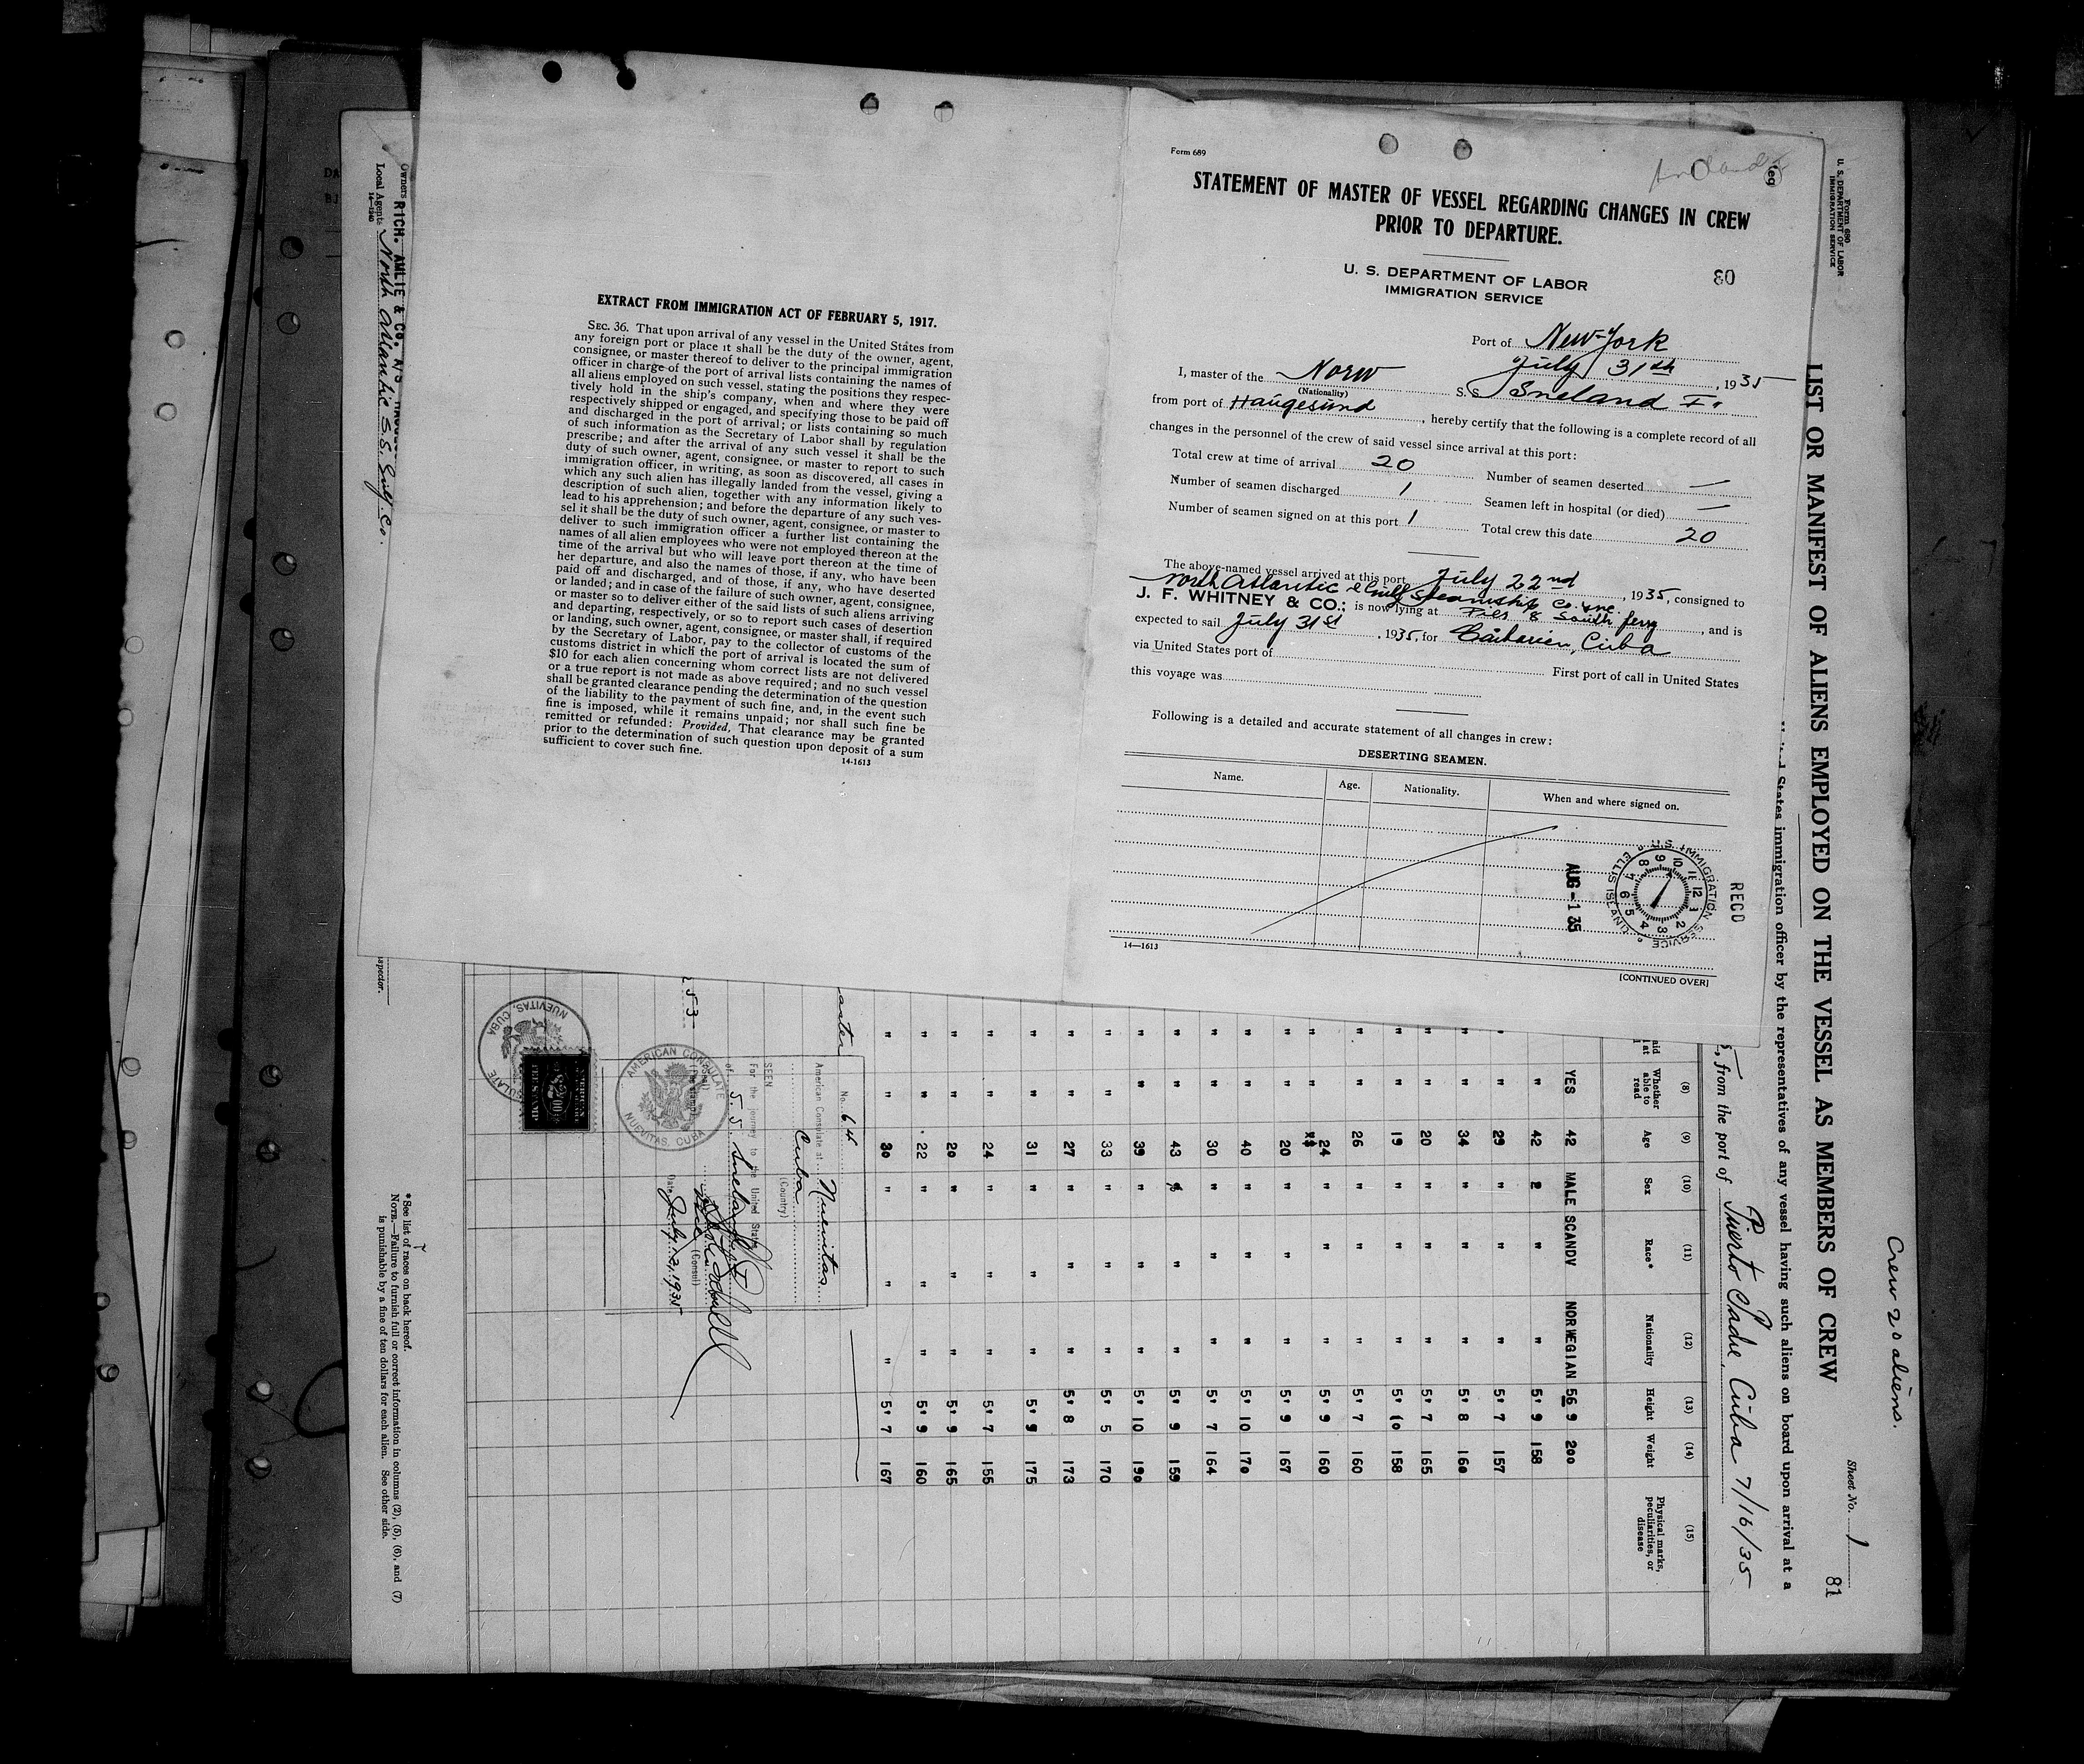 EXTRACT FROM IMMIGRATION ACT OF FEBRUARY 5, 1917.
SEC. 36. That upon arrival of any vessel in the United States from
any foreign port or place it shall be the duty of the owner, agent,
consignee, or master thereof to deliver to the principal immigration
officer in charge of the port of arrival lists containing the names of
all aliens employed on such vessel, stating the positions they respec-
tively hold in the ship's company, when and where they were
respectively shipped or engaged, and specifying those to be paid off
and discharged in the port of arrival; or lists containing so much
of such information as the Secretary of Labor shall by regulation
prescribe; and after the arrival of any such vessel it shall be the
duty of such owner, agent, consignee, or master to report to such
immigration officer, in writing, as soon as discovered, all cases in
which any such alien has illegally landed from the vessel, giving a
description of such alien, together with any information likely to
lead to his apprehension; and before the departure of any such ves-
sel it shall be the duty of such owner, agent, consignee, or master to
deliver to such immigration officer a further list containing the
names of all alien employees who were not employed thereon at the
time of the arrival but who will leave port thereon at the time of
her departure, and also the names of those, if any, who have been
paid off and discharged, and of those, if any, who have deserted
or landed; and in case of the failure of such owner, agent, consignee,
or master so to deliver either of the said lists of such aliens arriving
and departing, respectively, or so to report such cases of desertion
or landing, such owner, agent, consignee, or master shall, if required
by the Secretary of Labor, pay to the collector of customs of the
customs district in which the port of arrival is located the sum of
$10 for each alien concerning whom correct lists are not delivered
or a true report is not made as above required; and no such vessel
shall be granted clearance pending the determination of the question
of the liability to the payment of such fine, and, in the event such
fine is imposed, while it remains unpaid; nor shall such fine be
remitted or refunded: Provided, That clearance may be granted
prior to the determination of such question upon deposit of a sum
sufficient to cover such fine.
14-1613
Form 689
STATEMENT OF MASTER OF VESSEL REGARDING CHANGES IN CREW
PRIOR TO DEPARTURE.
U. S. DEPARTMENT OF LABOR
IMMIGRATION SERVICE
80
Port of New-York
July 31th, 1935
I, master of the Norw S. S. Sneland I.
(Nationality)
from port of Haugesund, hereby certify that the following is a complete record of all
changes in the personnel of the crew of said vessel since arrival at this port:
Total crew at time of arrival 20 Number of seamen deserted —
Number of seamen discharged 1 Seamen left in hospital (or died) —
Number of seamen signed on at this port 1 Total crew this date 20
The above-named vessel arrived at this port July 22nd, 1935, consigned to
North Atlantic & Gulf Steamship Co. Inc.
J. F. WHITNEY & CO.; is now lying at Pier 8 South ferry, and is
expected to sail July 31st, 1935, for Caibarien, Cuba
via United States port of First port of call in United States
this voyage was
Following is a detailed and accurate statement of all changes in crew:
DESERTING SEAMEN.
Name. Age. Nationality. When and where signed on.
REC'D
U.S. IMMIGRATION SERVICE ELLIS ISLAND
AUG -1 35
14—1613
[CONTINUED OVER]
Form 680
U. S. DEPARTMENT OF LABOR
IMMIGRATION SERVICE
Crew 20 aliens.
Sheet No. 1
81
LIST OR MANIFEST OF ALIENS EMPLOYED ON THE VESSEL AS MEMBERS OF CREW
States immigration officer by the representatives of any vessel having such aliens on board upon arrival at a
, from the port of Puerto Padre, Cuba 7/16/35
(8) (9) (10) (11) (12) (13) (14) (15)
Whether able to read
Age
Sex
Race*
Nationality
Height
Weight
Physical marks, peculiarities, or disease
YES 42 MALE SCANDV NORWEGIAN 56 9 200
" " 42 " " " 5' 9 158
" " 29 " " " 5' 7 157
" " 34 " " " 5' 8 160
" " 20 " " " 5' 7 165
" " 19 " " " 5' 10 158
" " 26 " " " 5' 7 160
" " 24 " " " 5' 9 160
" " 20 " " " 5' 9 167
" " 40 " " " 5' 10 170
" " 30 " " " 5' 7 164
" " 43 " " " 5' 9 159
" " 39 " " " 5' 10 190
" " 33 " " " 5' 5 170
" " 27 " " " 5' 8 173
" " 31 " " " 5' 9 175
" " 24 " " " 5' 7 155
" " 20 " " " 5' 9 165
" " 22 " " " 5' 9 160
" " 30 " " " 5' 7 167
American Consulate at Nuevitas
Cuba
(Country)
SEEN
For the journey to the United States
of S.S. Sneland I
(Consul)
Date July 12, 1935
AMERICAN CONSULATE
NUEVITAS, CUBA
NUEVITAS, CUBA
*See list of races on back hereof.
NOTE.—Failure to furnish full or correct information in columns (2), (5), (6), and (7)
is punishable by a fine of ten dollars for each alien. See other side.
Owners RICH. AMLIE & CO. A/S
Local Agents North Atlantic S.S. Gulf Co.